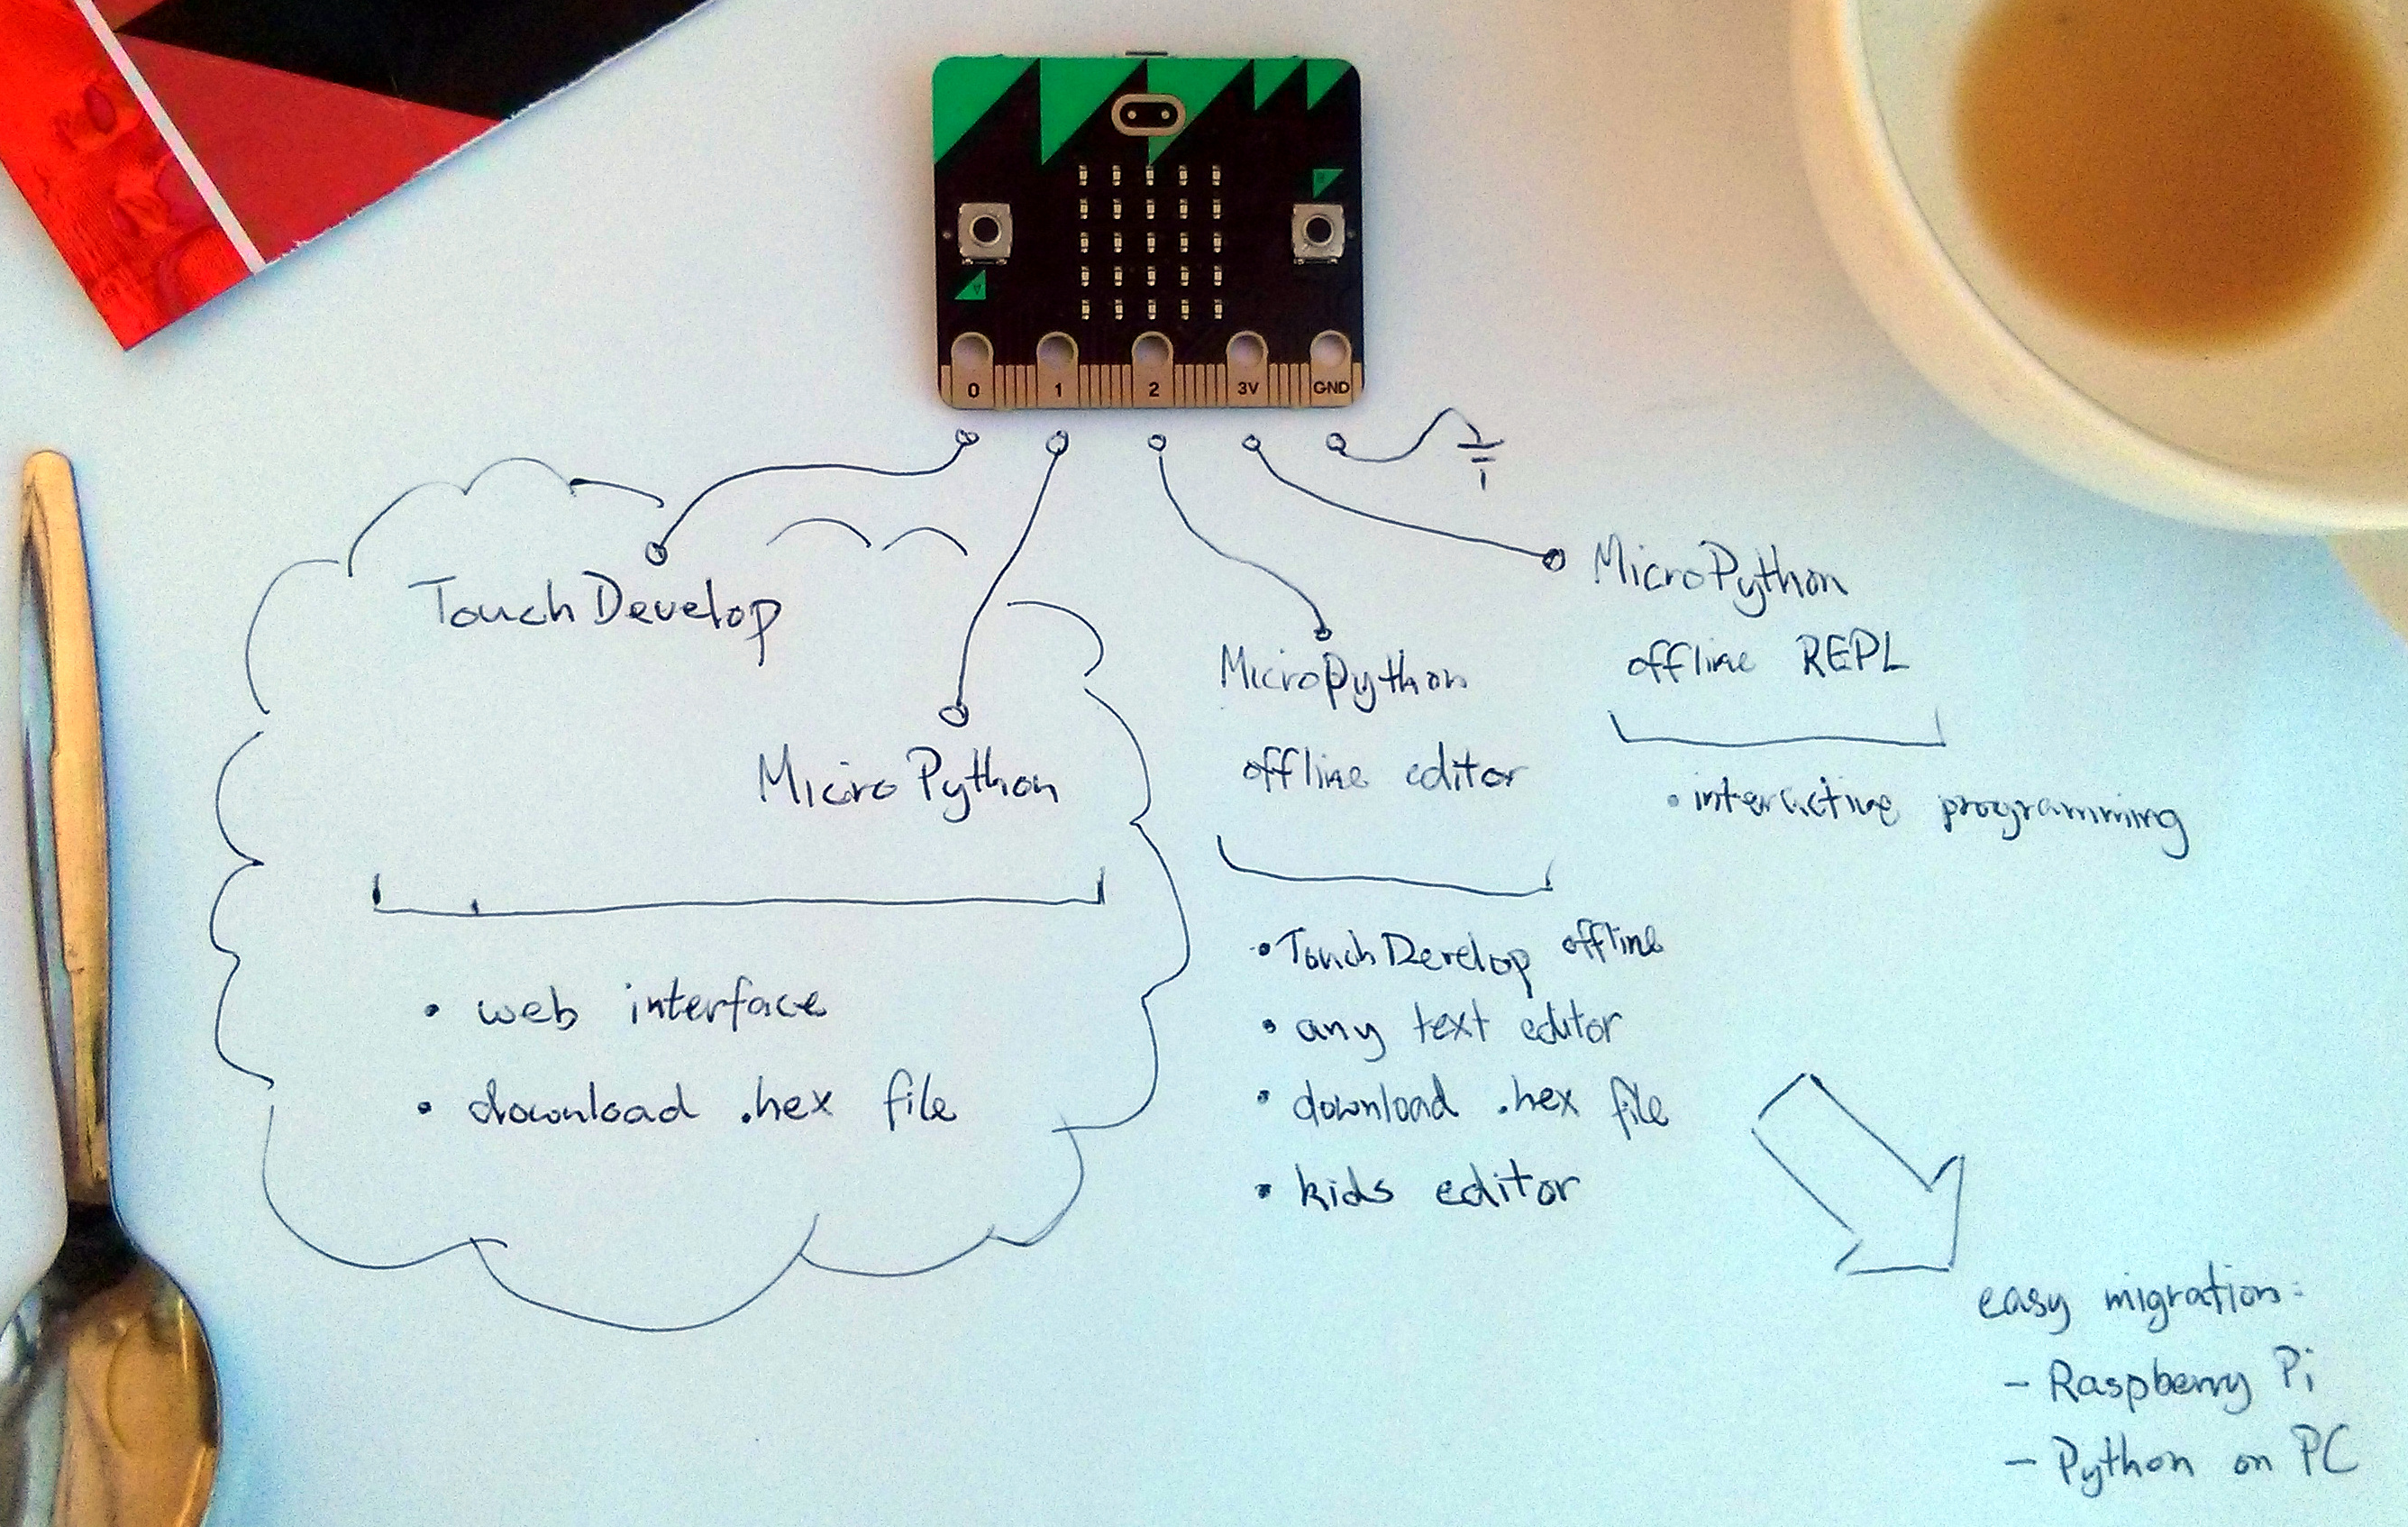 B
A
0 1 2 3V GND
TouchDevelop
MicroPython
• web interface
• download .hex file
MicroPython
offline editor
• TouchDevelop offline
• any text editor
• download .hex file
• kids editor
MicroPython
offline REPL
• interactive programming
easy migration:
– Raspberry Pi
– Python on PC